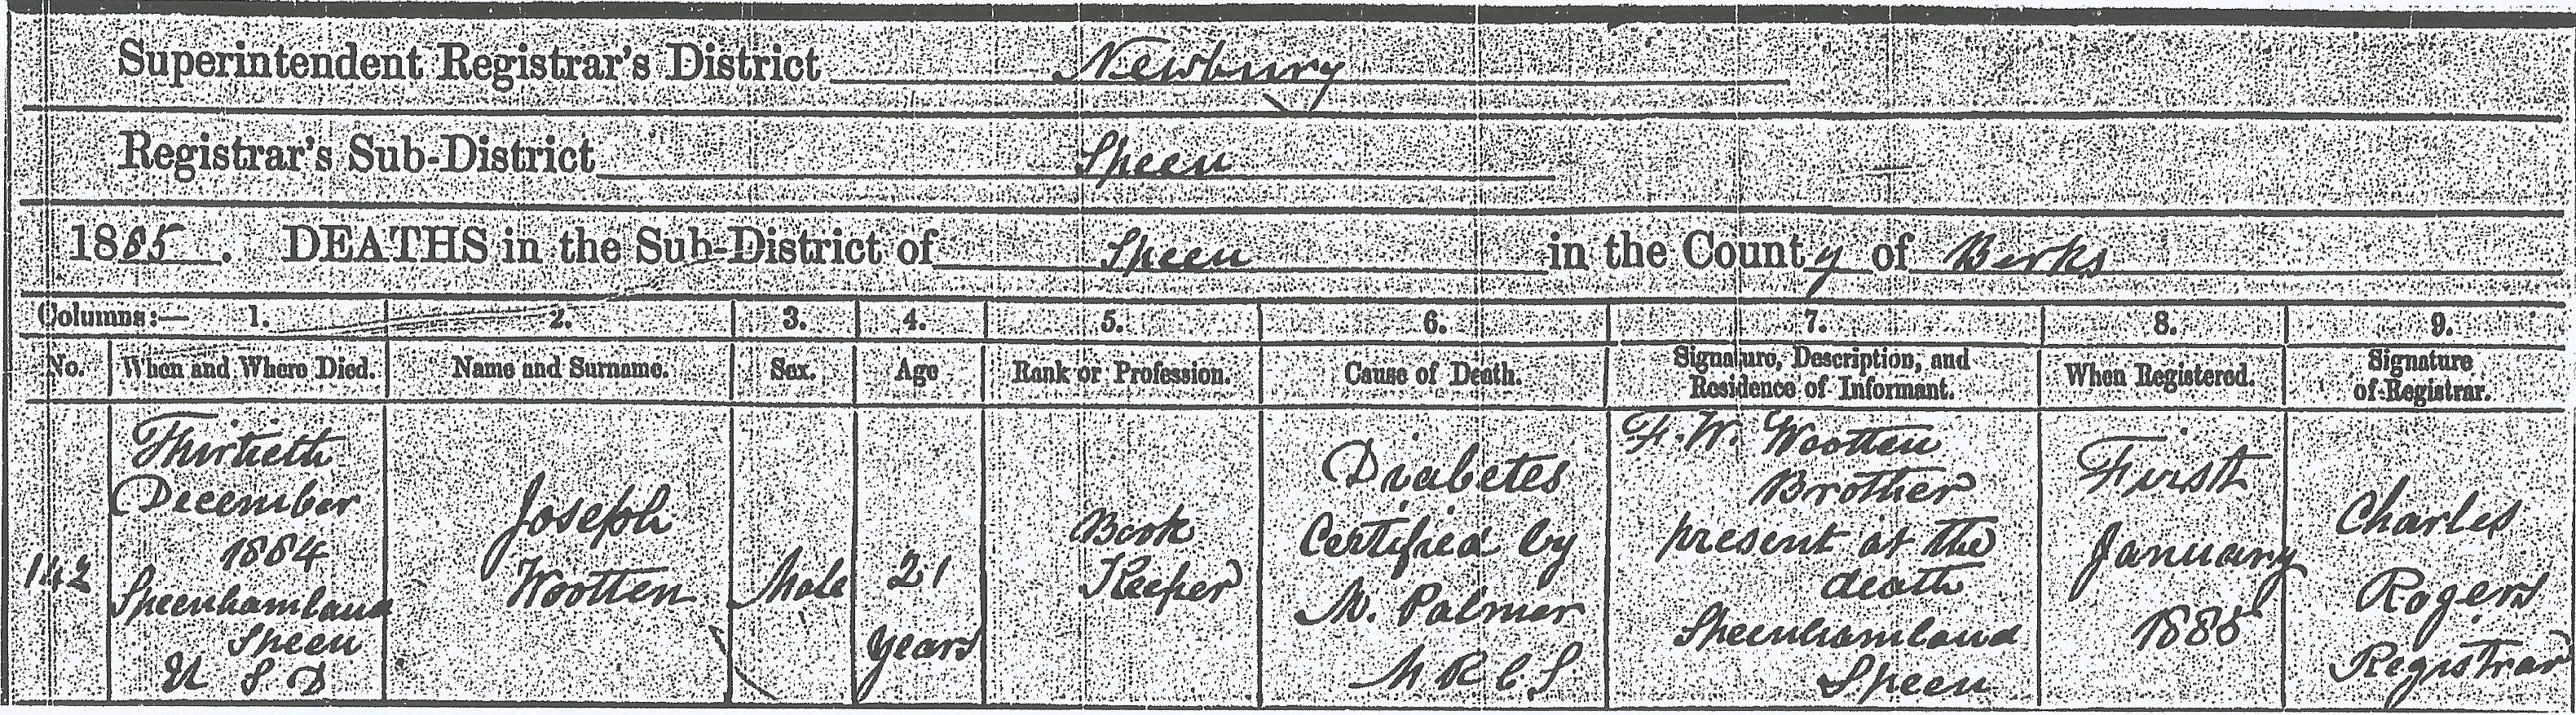 Superintendent Registrar's District Newbury
Registrar's Sub-District Speen
1885. DEATHS in the Sub-District of Speen in the County of Berks
Columns:— 1. 2. 3. 4. 5. 6. 7. 8. 9.
No. When and Where Died. Name and Surname. Sex. Age Rank or Profession. Cause of Death. Signature, Description, and Residence of Informant. When Registered. Signature of Registrar.
142
Thirtieth
December
1884
Speenhamland
Speen
U S D
Joseph
Wootten
Male
21
years
Book
Keeper
Diabetes
Certified by
M. Palmer
M R C S
F. W. Wootten
Brother
present at the
death
Speenhamland
Speen
First
January
1885
Charles
Rogers
Registrar